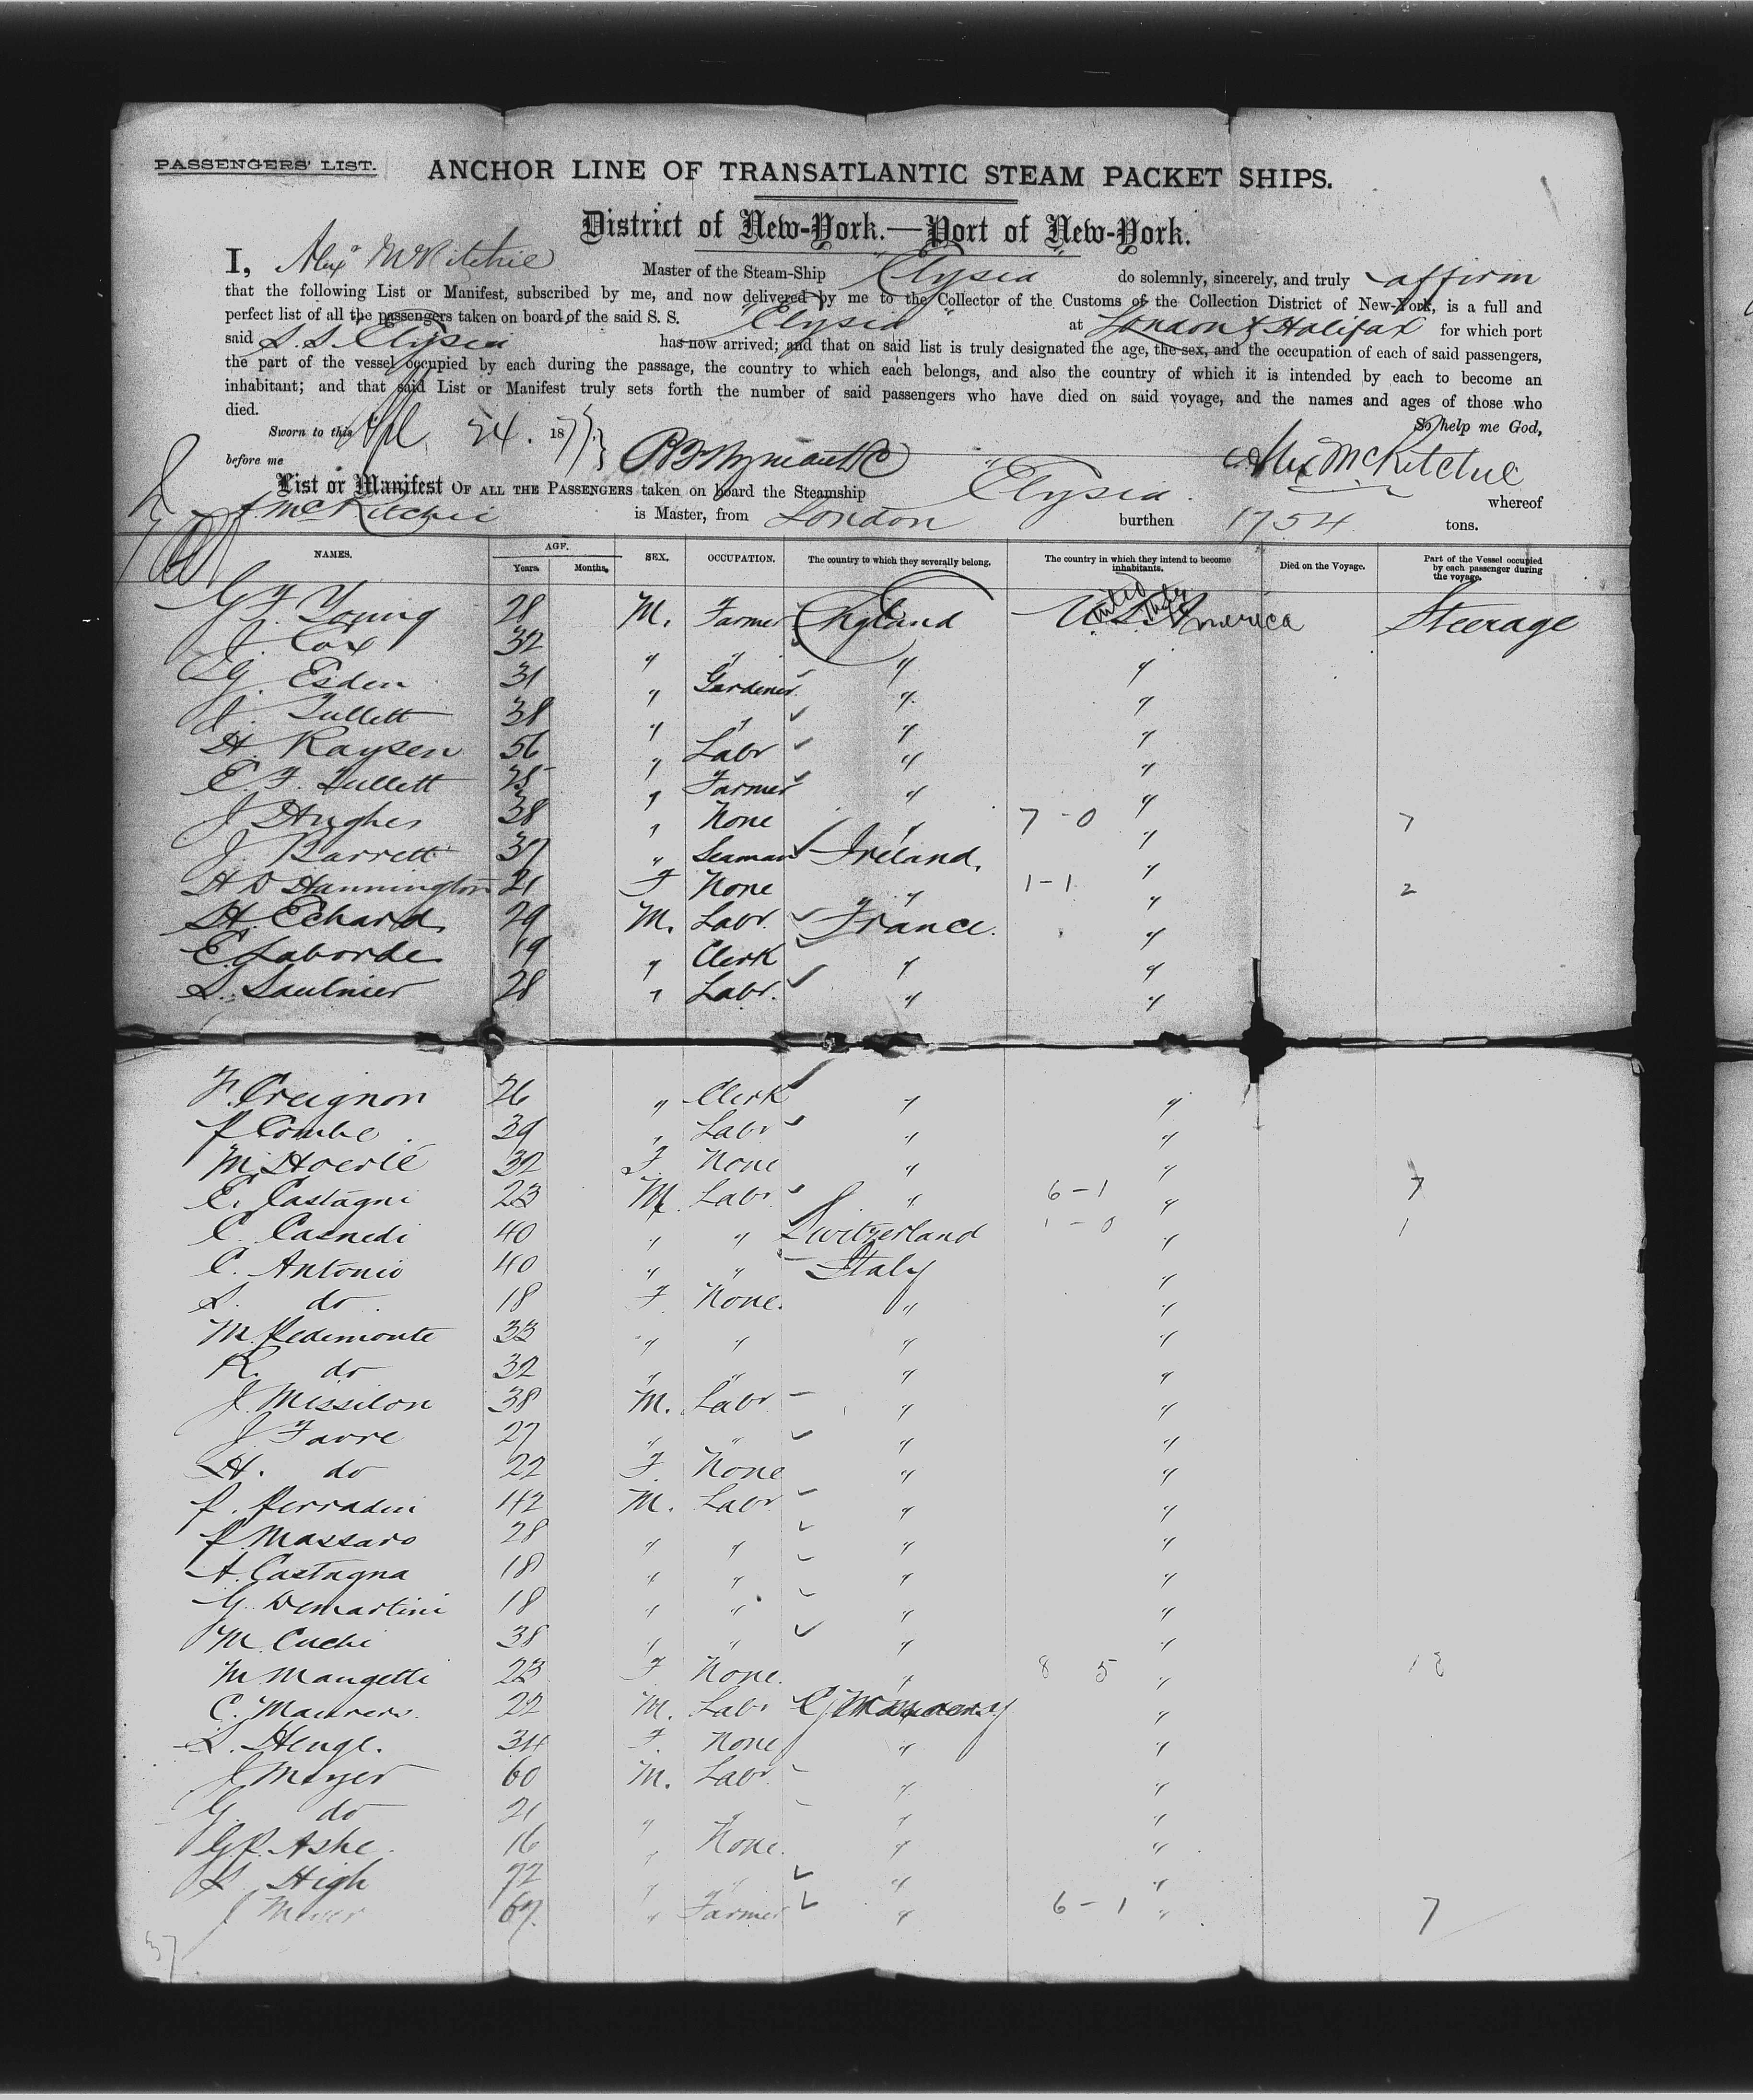 PASSENGERS' LIST.
ANCHOR LINE OF TRANSATLANTIC STEAM PACKET SHIPS.
District of New-York.—Port of New-York.
I, Alexr McRitchie Master of the Steam-Ship "Elysia" do solemnly, sincerely, and truly affirm
that the following List or Manifest, subscribed by me, and now delivered by me to the Collector of the Customs of the Collection District of New-York, is a full and
perfect list of all the passengers taken on board of the said S. S. "Elysia" at London & Halifax for which port
said S.S. Elysia has now arrived; and that on said list is truly designated the age, the sex, and the occupation of each of said passengers,
the part of the vessel occupied by each during the passage, the country to which each belongs, and also the country of which it is intended by each to become an
inhabitant; and that said List or Manifest truly sets forth the number of said passengers who have died on said voyage, and the names and ages of those who
died. So help me God,
Sworn to this Apl 24. 1877
before me Alex McRitchie
List or Manifest OF ALL THE PASSENGERS taken on board the Steamship "Elysia. whereof
McRitchie is Master, from London burthen 1754 tons.
NAMES. AGE. Years. Months. SEX. OCCUPATION. The country to which they severally belong. The country in which they intend to become inhabitants. Died on the Voyage. Part of the Vessel occupied by each passenger during the voyage.
G F Young 28 M. Farmer England U.S. America Steerage
J. Cox 32 " " " "
G Esden 31 " Gardener " "
J. Tullett 38 " " " "
H Raysen 56 " Labr " "
E. F. Tullett 25 " Farmer " "
J Hughes 38 " None " 7-0 " 7
J. Barrett 37 " Seaman Ireland. "
H D Hannington 21 F None " 1-1 " 2
H. Echard 29 M. Labr. France. "
E. Laborde 19 " Clerk " "
S. Saulnier 28 " Labr. " "
F. Creignon 26 " Clerk " "
P Combe 39 " Labr " "
M. Hoerlé 32 F. None " "
E. Castagni 23 M. Labr " 6-1 " 7
C. Casnedi 40 " " Switzerland 1-0 " 1
C. Antonio 40 " " Italy "
S. do 18 F None. " "
M. Pedemonte 33 " " " "
R. do 32 " " " "
J. Missilon 38 M. Labr " "
J. Favre 27 " " " "
H. do 22 F. None " "
P. Perradin 42 M. Labr " "
P. Massaro 28 " " " "
A. Castagna 18 " " " "
G. Demartini 18 " " " "
M. Cuchi 38 " " " "
M Mangetti 23 F None. " 8 5 " 18
C. 22 M. Labr Germany "
L. Hengl. 34 F. None " "
J Meyer 60 M. Labr " "
G. do 21 " " " "
G.P. Ashe. 16 " None. " "
S. High 72 " " " "
J 67. " Farmer " 6-1 " 7
37